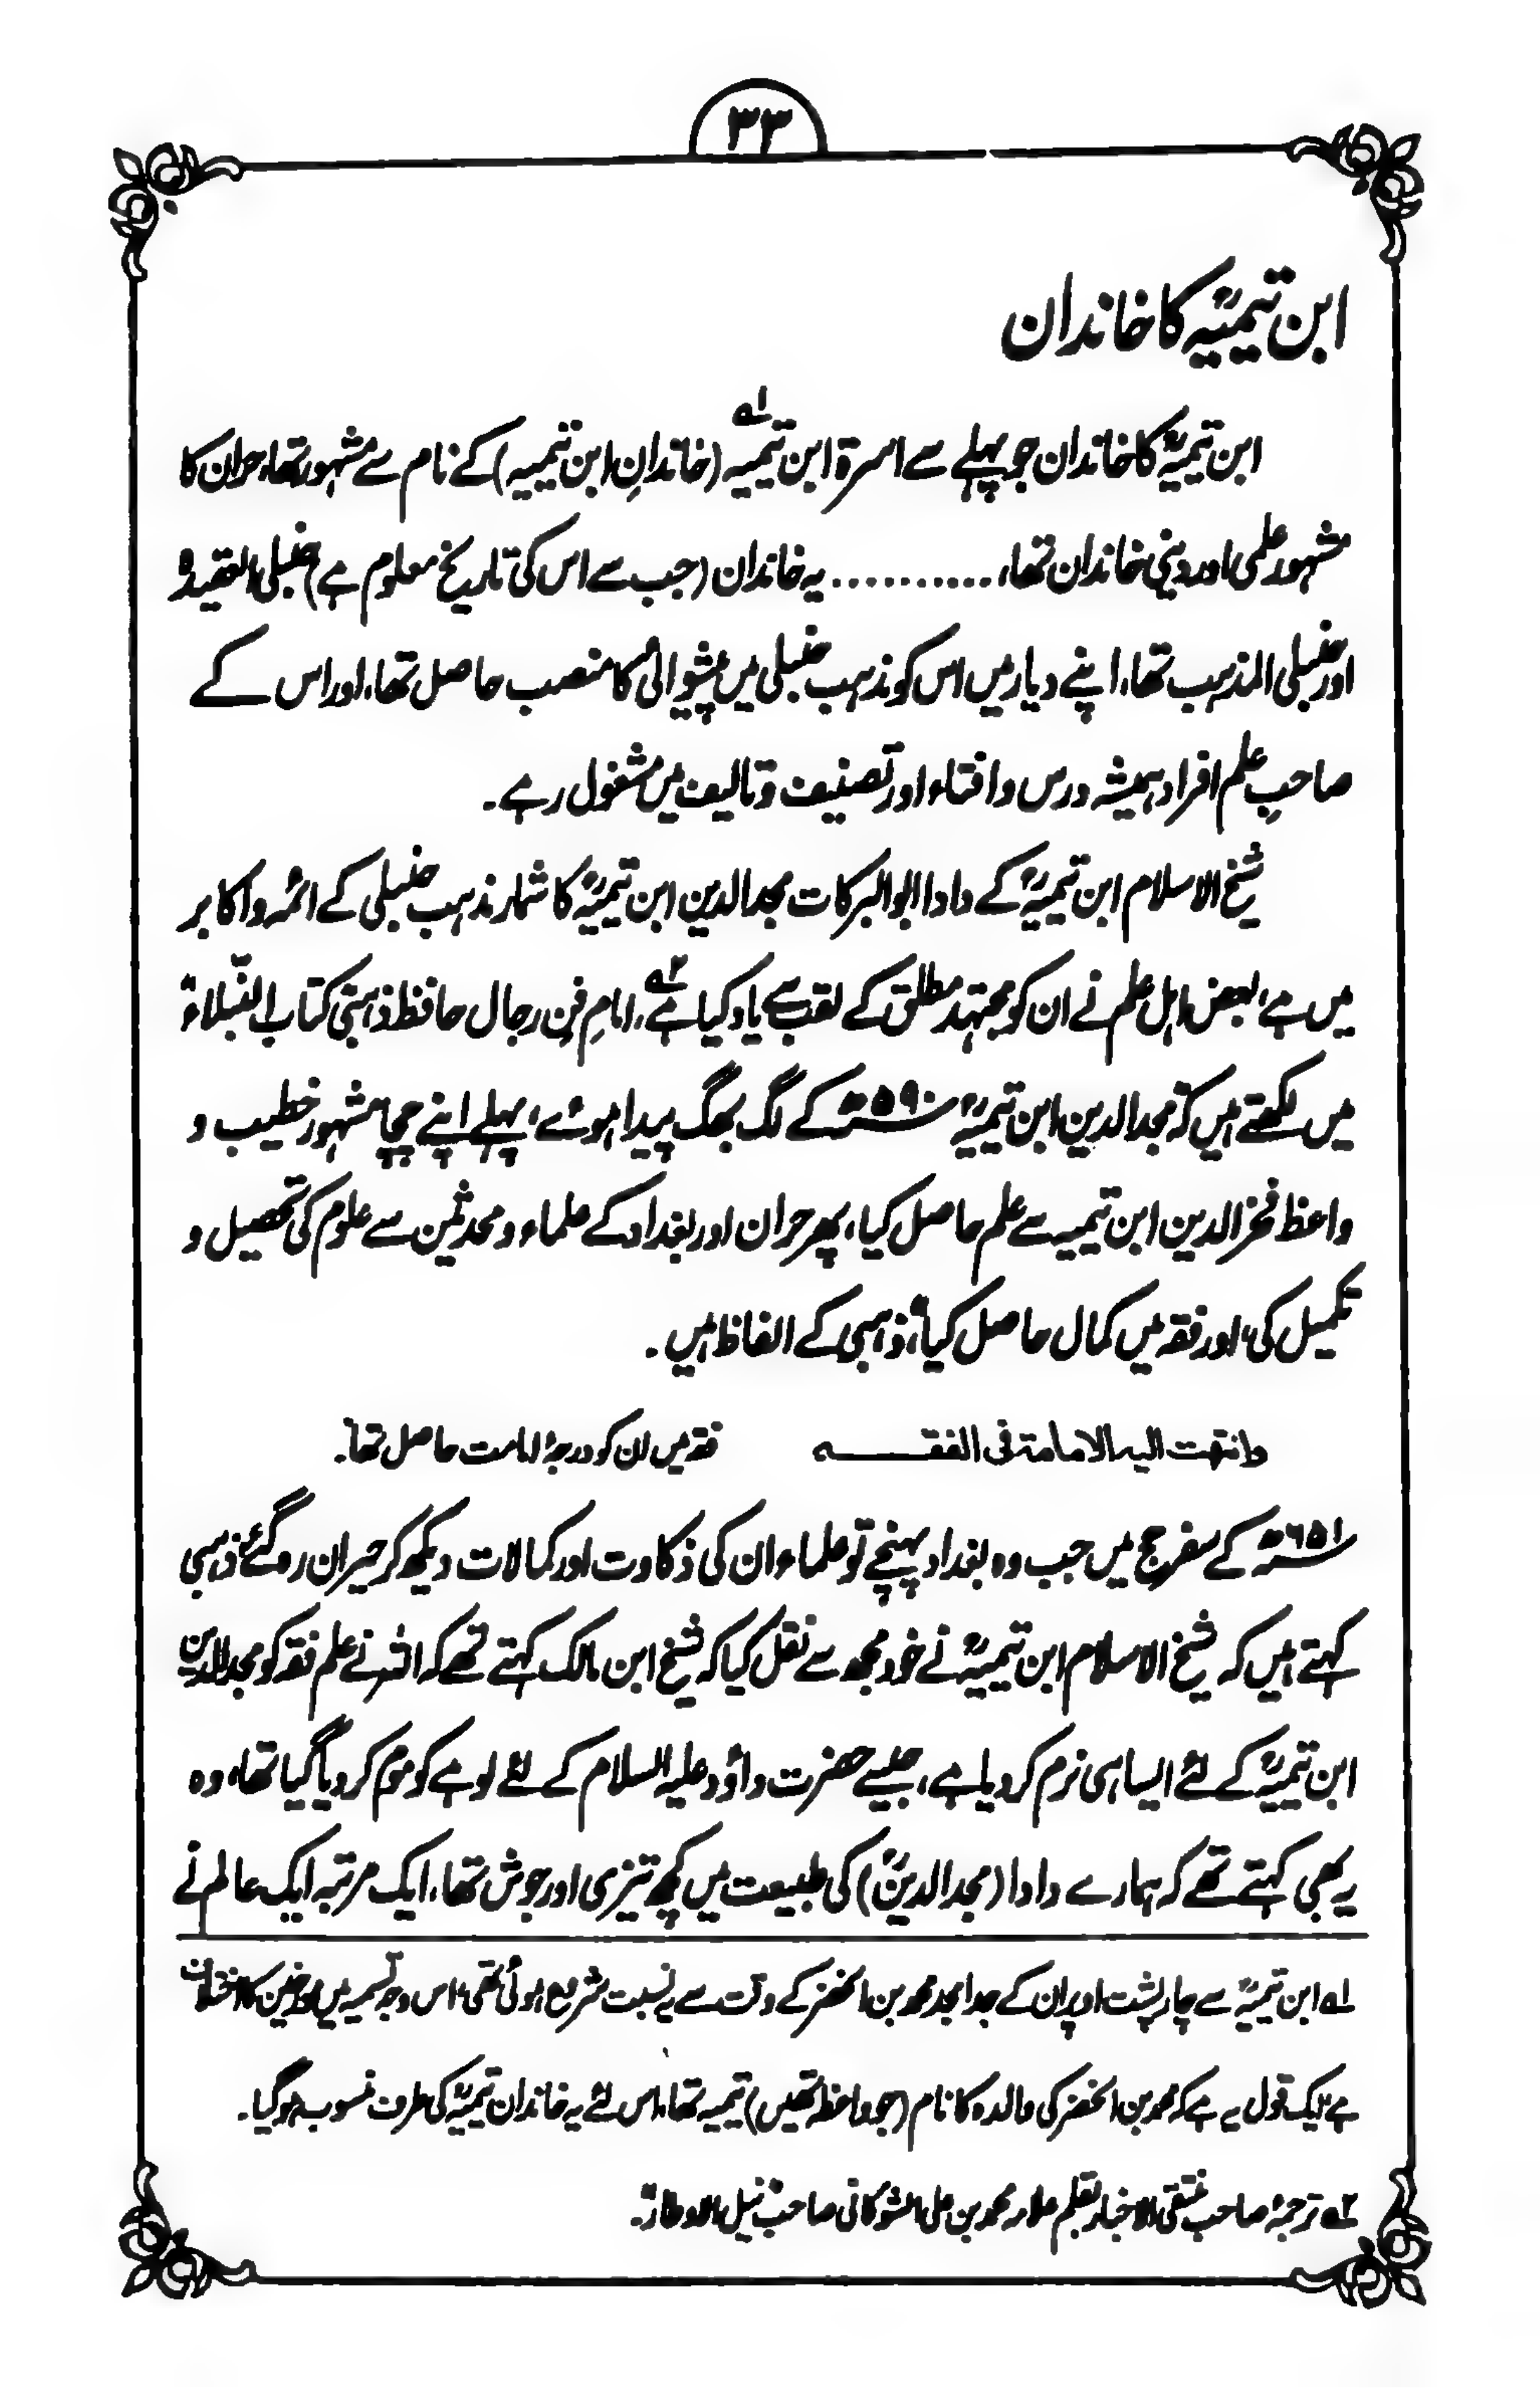 ۳۳
ابن تیمیہؒ کا خاندان
ابن تیمیہؒ کا خاندان جو پہلے سے اسرۃ ابن تیمیہ ؎۱ (خاندانِ ابن تیمیہ) کے نام سے مشہور تھا، حران کا
مشہور علمی اور دینی خاندان تھا، .......... یہ خاندان (جب سے اس کی تاریخ معلوم ہے) حنبلی العقیدہ
اور حنبلی المذہب تھا، اپنے دیار میں اس کو مذہب حنبلی میں پیشوائی کا منصب حاصل تھا، اور اس کے
صاحبِ علم افراد ہمیشہ درس و افتاء اور تصنیف و تالیف میں مشغول رہے۔
شیخ الاسلام ابن تیمیہؒ کے دادا ابوالبرکات مجدالدین ابن تیمیہؒ کا شمار مذہب حنبلی کے ائمہ و اکابر
میں ہے، بعض اہل علم نے ان کو مجتہد مطلق کے لقب سے یاد کیا ہے ؎۲، امامِ فن رجال حافظ ذہبی کتاب النبلاء
میں لکھتے ہیں کہ "مجدالدین ابن تیمیہؒ ۵۹۰ھ کے لگ بھگ پیدا ہوئے، پہلے اپنے چچا مشہور خطیب و
واعظ فخرالدین ابن تیمیہ سے علم حاصل کیا، پھر حران اور بغداد کے علماء و محدثین سے علوم کی تحصیل و
تکمیل کی، اور فقہ میں کمال حاصل کیا"، ذہبی کے الفاظ ہیں۔
وانتہت الیہ الامامۃ فی الفقہ فقہ میں ان کو درجۂ امامت حاصل تھا۔
۶۵۱ھ کے سفر حج میں جب وہ بغداد پہنچے تو علماء ان کی ذکاوت اور کمالات دیکھ کر حیران رہ گئے، ذہبی
کہتے ہیں کہ شیخ الاسلام ابن تیمیہؒ نے خود مجھ سے نقل کیا کہ شیخ ابن مالک کہتے تھے کہ اللہ نے علم فقہ کو مجدالدین
ابن تیمیہؒ کے لئے ایسا ہی نرم کر دیا ہے، جیسے حضرت داؤد علیہ السلام کے لئے لوہے کو موم کر دیا گیا تھا، وہ
یہ بھی کہتے تھے کہ ہمارے دادا (مجدالدینؒ) کی طبیعت میں کچھ تیزی اور جوش تھا، ایک مرتبہ ایک عالم نے
؎۱ ابن تیمیہؒ سے چار پشت اوپر ان کے جد امجد محمد بن الخضر کے وقت سے یہ نسبت شروع ہوئی تھی، اس وجہ تسمیہ میں مورخین کا اختلاف
ہے، ایک قول یہ ہے کہ محمد بن الخضر کی والدہ کا نام (جو واعظہ تھیں) تیمیہ تھا، اس لئے یہ خاندان تیمیہؒ کی طرف منسوب ہو گیا۔
؎۲ ترجمۂ صاحب منتقی الاخبار بقلم علامہ محمد بن علی الشوکانی صاحب "نیل الاوطار"۔